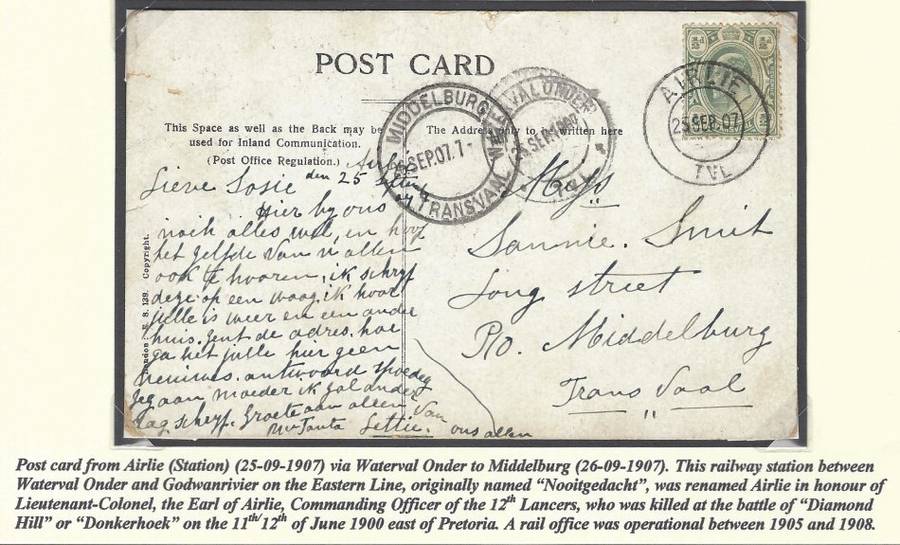 POST CARD
This Space as well as the Back may be
used for Inland Communication.
(Post Office Regulation.)
The Address only to be written here
MIDDELBURG
SEP.07.
TRANSVAAL
WAVAL ONDER
SEP
AIRLIE
25 SEP.07
TVL
½d ½d
London E. S. 139. Copyright.
Airlie
den 25 Sept
Lieve Sosie
Hier by ons
noch alles wel, en hoop
het zelfde van u allen
ook te hooren, ik schryf
deze op een waag, ik hoor
julle is weer en een ander
huis. Zent de adres. hoe
ga het julle hier geen
nieuws. antwoord spoedig
Zeg aan moeder ik zal ander
dag schryf. Groete aan allen van
Uw Tanta Lettie. ons allen
Miss
Sannie. Smit
Long street
P/o. Middelburg
Trans Vaal
Post card from Airlie (Station) (25-09-1907) via Waterval Onder to Middelburg (26-09-1907). This railway station between
Waterval Onder and Godwanrivier on the Eastern Line, originally named “Nooitgedacht”, was renamed Airlie in honour of
Lieutenant-Colonel, the Earl of Airlie, Commanding Officer of the 12th Lancers, who was killed at the battle of “Diamond
Hill” or “Donkerhoek” on the 11th/12th of June 1900 east of Pretoria. A rail office was operational between 1905 and 1908.